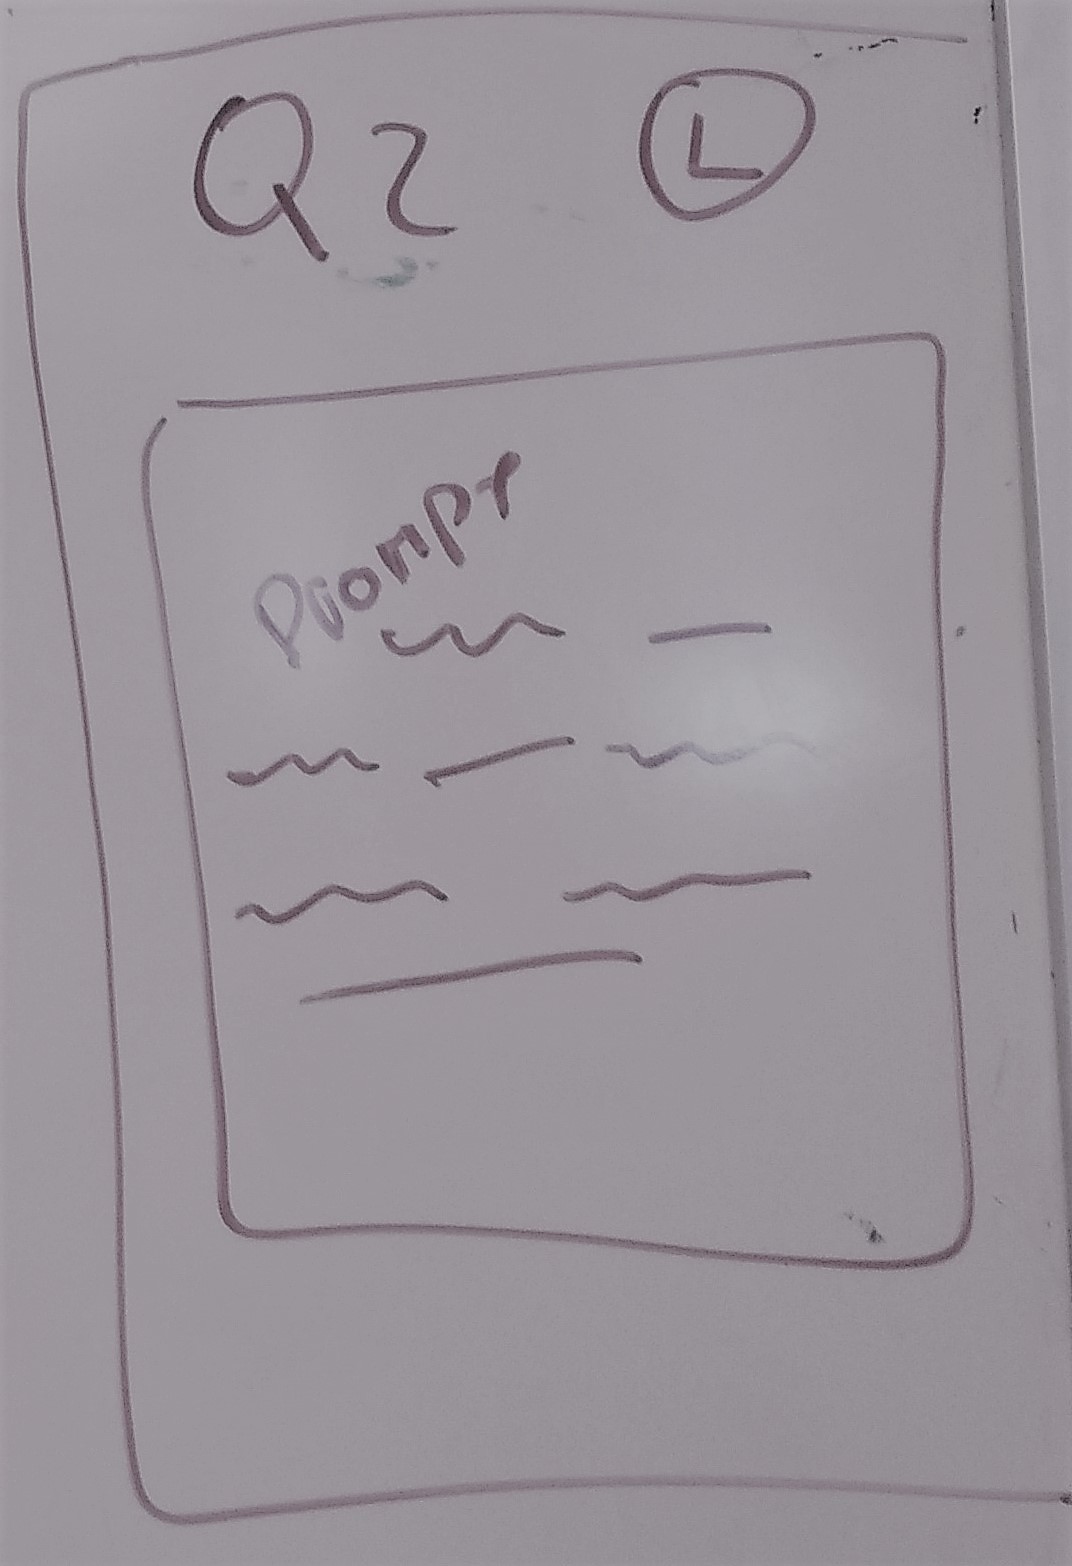 Q2 L
Prompt